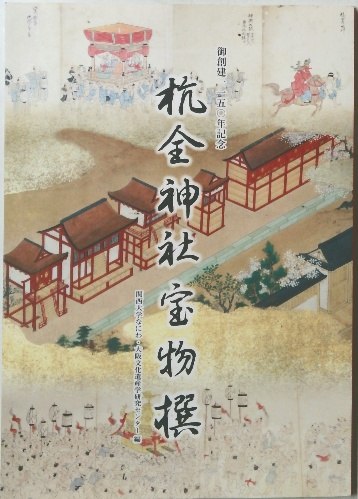 御創建一一五〇年記念
杭全神社宝物撰
関西大学なにわ・大阪文化遺産学研究センター 編